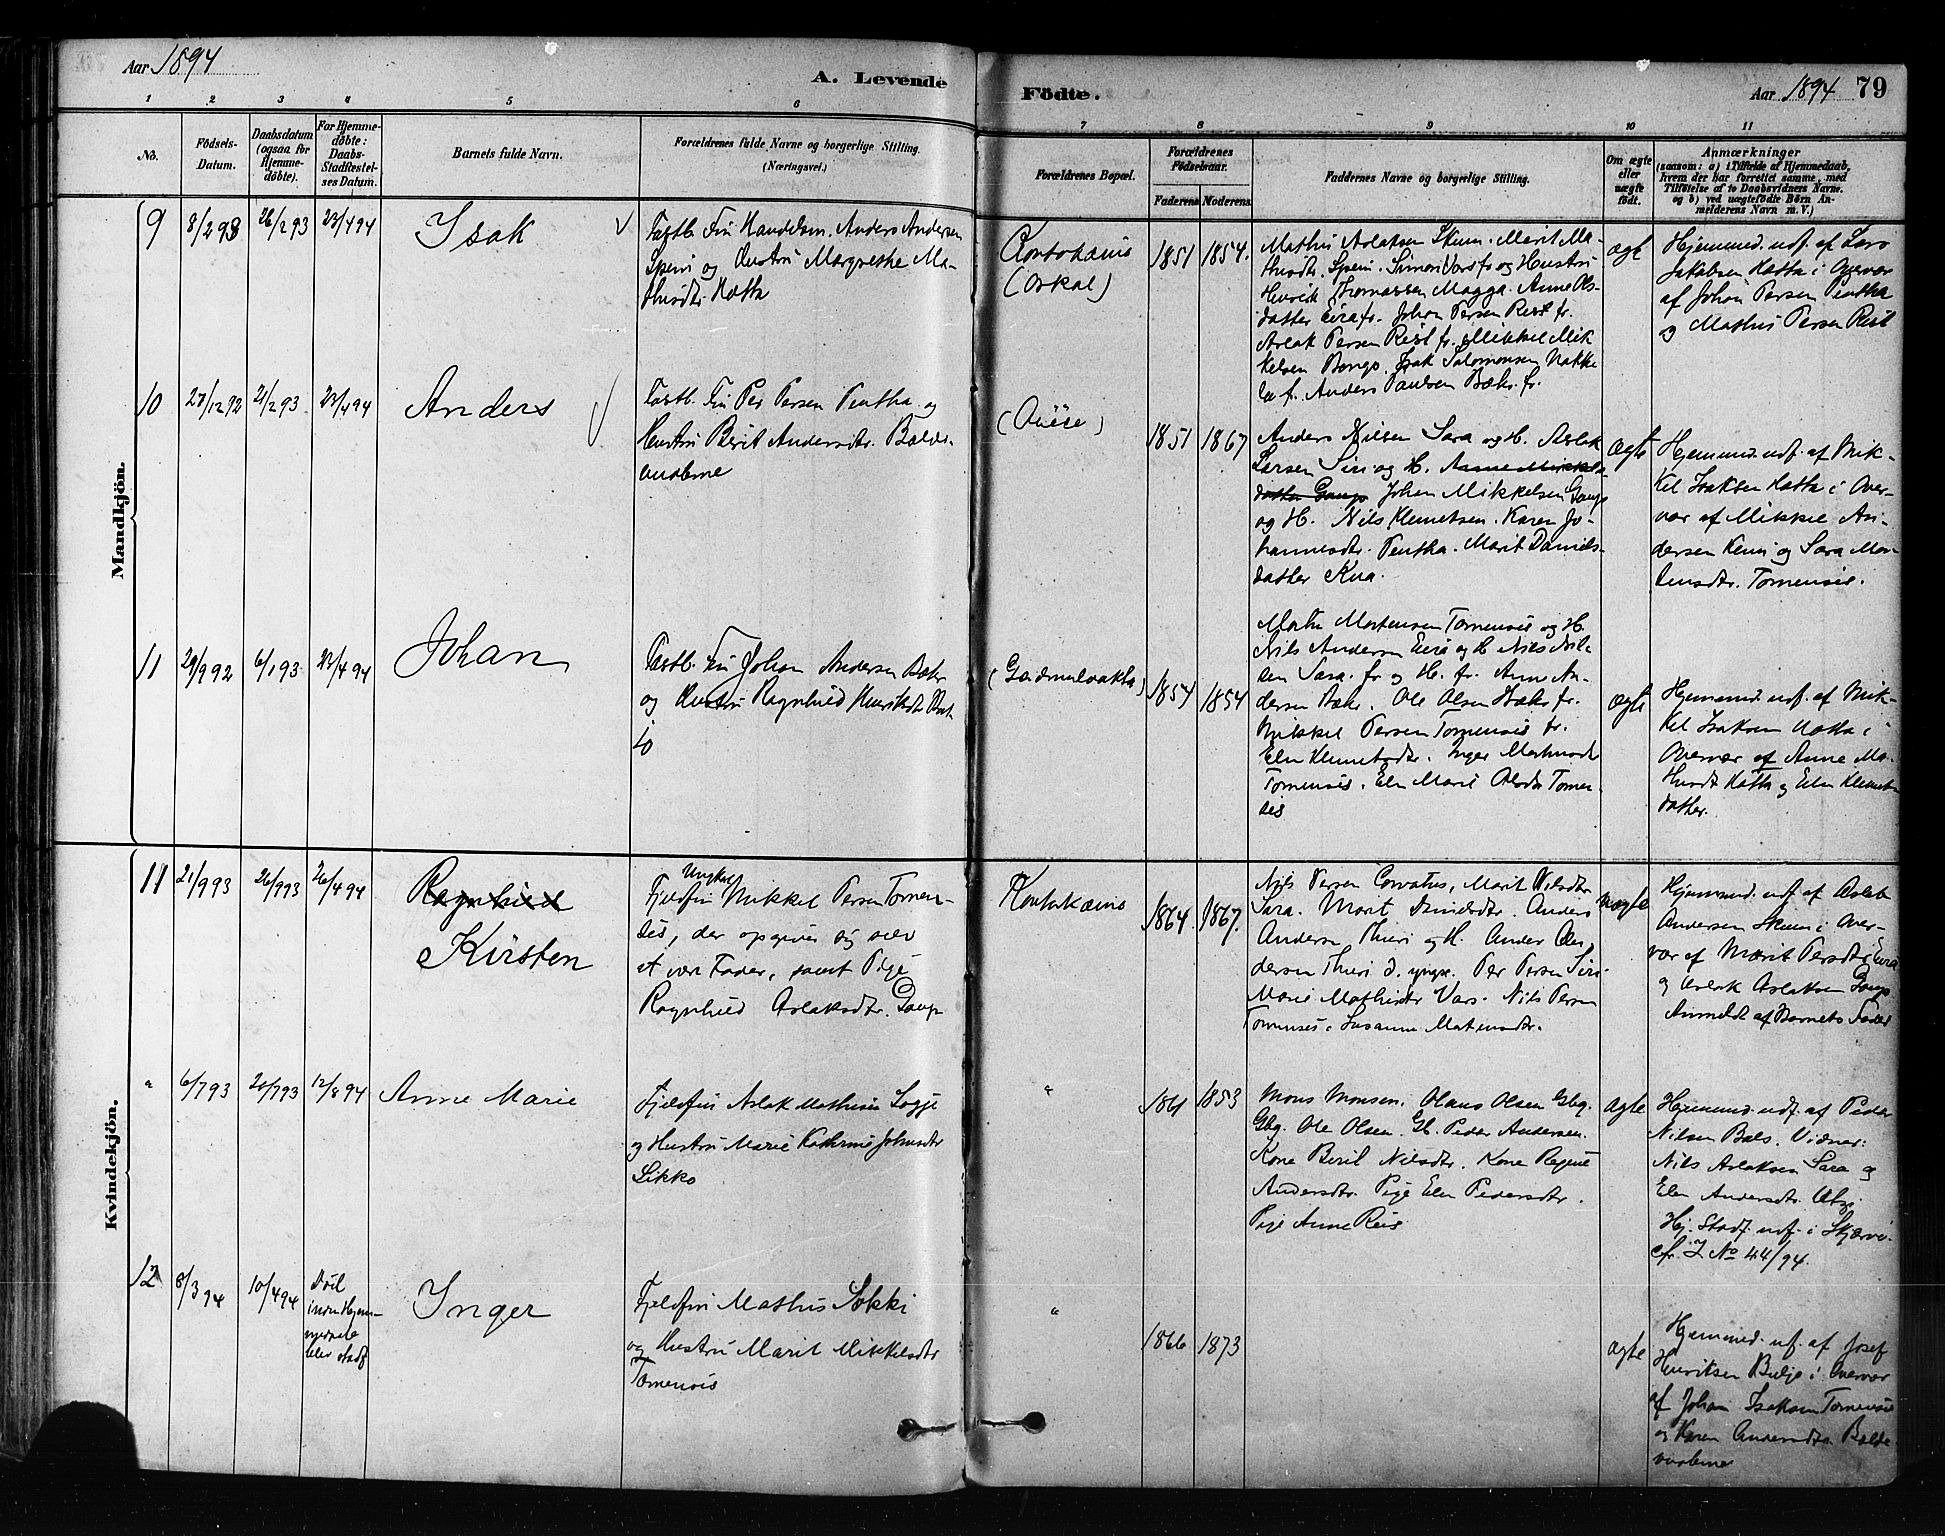 Aar 1894
A. Levende
Fødte.
Aar 1894 79
1 2 3 4 5 6 7 8 9 10 11
No.
Fødsels-
Datum.
Daabsdatum
(ogsaa for
Hjemme-
døbte).
For Hjemme-
døbte:
Daabs-
Stadfæstel-
ses Datum.
Barnets fulde Navn.
Forældrenes fulde Navne og borgerlige Stilling.
(Næringsvei.)
Forældrenes Bopæl.
Forældrenes
Fødselsaar.
Faderens Moderens
Faddernes Navne og borgerlige Stilling.
Om ægte
eller
uægte
født.
Anmærkninger
(saasom: a) i Tilfælde af Hjemmedaab,
hvem der har forrettet samme, med
Tilføielse af to Daabsvidners Navne.
og b) ved uægtefødte Børn An-
melderens Navn m. V.)
Mandkjön.
9 8/2 93 26/2 93 23/4 94 Isak
Fastb. Fin Handelsm. Anders Andersen
Spein og Hustru Margrethe Ma-
thisdtr. Hætta
(Oskal)
1851 1854.
Mathis Aslaksen Skum. Marit Ma-
thisdtr. Spein. Simon Vars fr og Hustru
Henrik Thomassen Magga. Anne Ols-
datter Eira fr. Johan Persen Rist fr.
Aslak Persen Rist fr. Mikkel Mik
kelsen Bongo. Isak Salomonsen Nakke
la f. Anders Paulsen Bæhr. fr.
ægt
Hjemmed. udf. af Lars
Jakobsen Hætta i Overvær
af Johan Persen Pentha
og Mathis Persen Rist
10 27/12 92 2/2 93 23/4 94 Anders
Fastb. Fin Per Persen Pentha og
Hustru Berit Andersdtr. Balde-
vuoleme
1851 1867
Anders Nilsen Sara og H. Aslak
Larsen Siri og H. Anne Mikkels
datter Gaup Johan Mikkelsen Gaup
og H. Nils Klemetsen. Karen Jo-
hannesdtr. Pentha. Marit Daniels-
datter Kua.
ægte
Hjemmed. udf. af Mik-
kel Isaksen Hætta i Over-
vær af Mikkel An-
dersen Kemi og Sara Mor-
tensdtr. Tornensis.
11 29/9 92 6/1 93 23/4 94 Johan
Fastb. Fin Johan Andersen Bæhr
og Hustru Ragnhild Henriksdtr
1854 1854
Morten Mortensen Tornensis og H.
Nils Andersen Eira og H Nils Nil-
sen Sara. fr og H. fr. Anne An-
dersen Bæhr. Ole Olsen Bæhr fr.
Mikkel Persen Tornensis fr.
Elen Klemetsdtr. Inger Mathisdtr
Tornensis. Elen Marit Olsdtr Tornen-
sis
ægte
Hjemmed. udf. af Mik-
kel Isaksen Hætta i
Overvær af Anne Ma-
thisdtr Hætta og Elen Klemets
datter.
Kvindekjön.
11 21/9 93 26/9 93 26/4 94 Ragnhild
Kirsten
Ungkar
Fjeldfin Mikkel Persen Tornen-
sis, der opgiver sig selv
at være Fader, samt Pige
Ragnhild Aslaksdtr. Gaup
Koutokæino
1864. 1867.
Nils Persen Corvatus, Marit Nilsdtr
Sara. Marit Danielsdtr. Anders
Andersn Thuri og H. Anders An
dersen Thuri d. yngre. Per Persen Siri
Marit Mathisdtr Vars. Nils Persen
Tornensis. Susanne Mortensdtr.
uægte
Hjemmed. udf. af Aslak
Andersen Skum i Over-
vær af Marit Persdtr Eira
og Aslak Aslaksen Gaup
Anmeldt af Barnets Fader
" 6/7 93 20/7 93 12/8 94 Anne Marie
Fjeldfin Aslak Mathisen Logje
og Hustru Marie Kathrine Johnsdtr
Sikko
"
1861 1853
Mons Monsen. Olaus Olsen Gbg.
Gbg. Ole Olsen. Gb. Peder Andersen.
Kone Beril Nilsdtr. Kone Regine
Andersdtr. Pige Elen Pedersdtr.
Pige Anne Reis
ægte
Hjemmed. udf. af Peder
Nilsen Bals. Vidner:
Nils Aslaksen Sara og
Elen Andersdtr. Utsi
Hj. Stadf. udf. i Skjervø
cfr. I No 44/94.
12 8/3 94 10/4 94 Död
inden Hjem-
medaab
blev stadf
Inger
Fjeldfin Mathis Sokki
og Hustru Marit Mikkelsdtr
Tornensis
"
1866 1873
ægte
Hjemmed. udf. af Josef
Henriksen Buljo i Overvær
af Johan Isaksen Tornensis
og Karen Andersdtr Balde
vuoleme